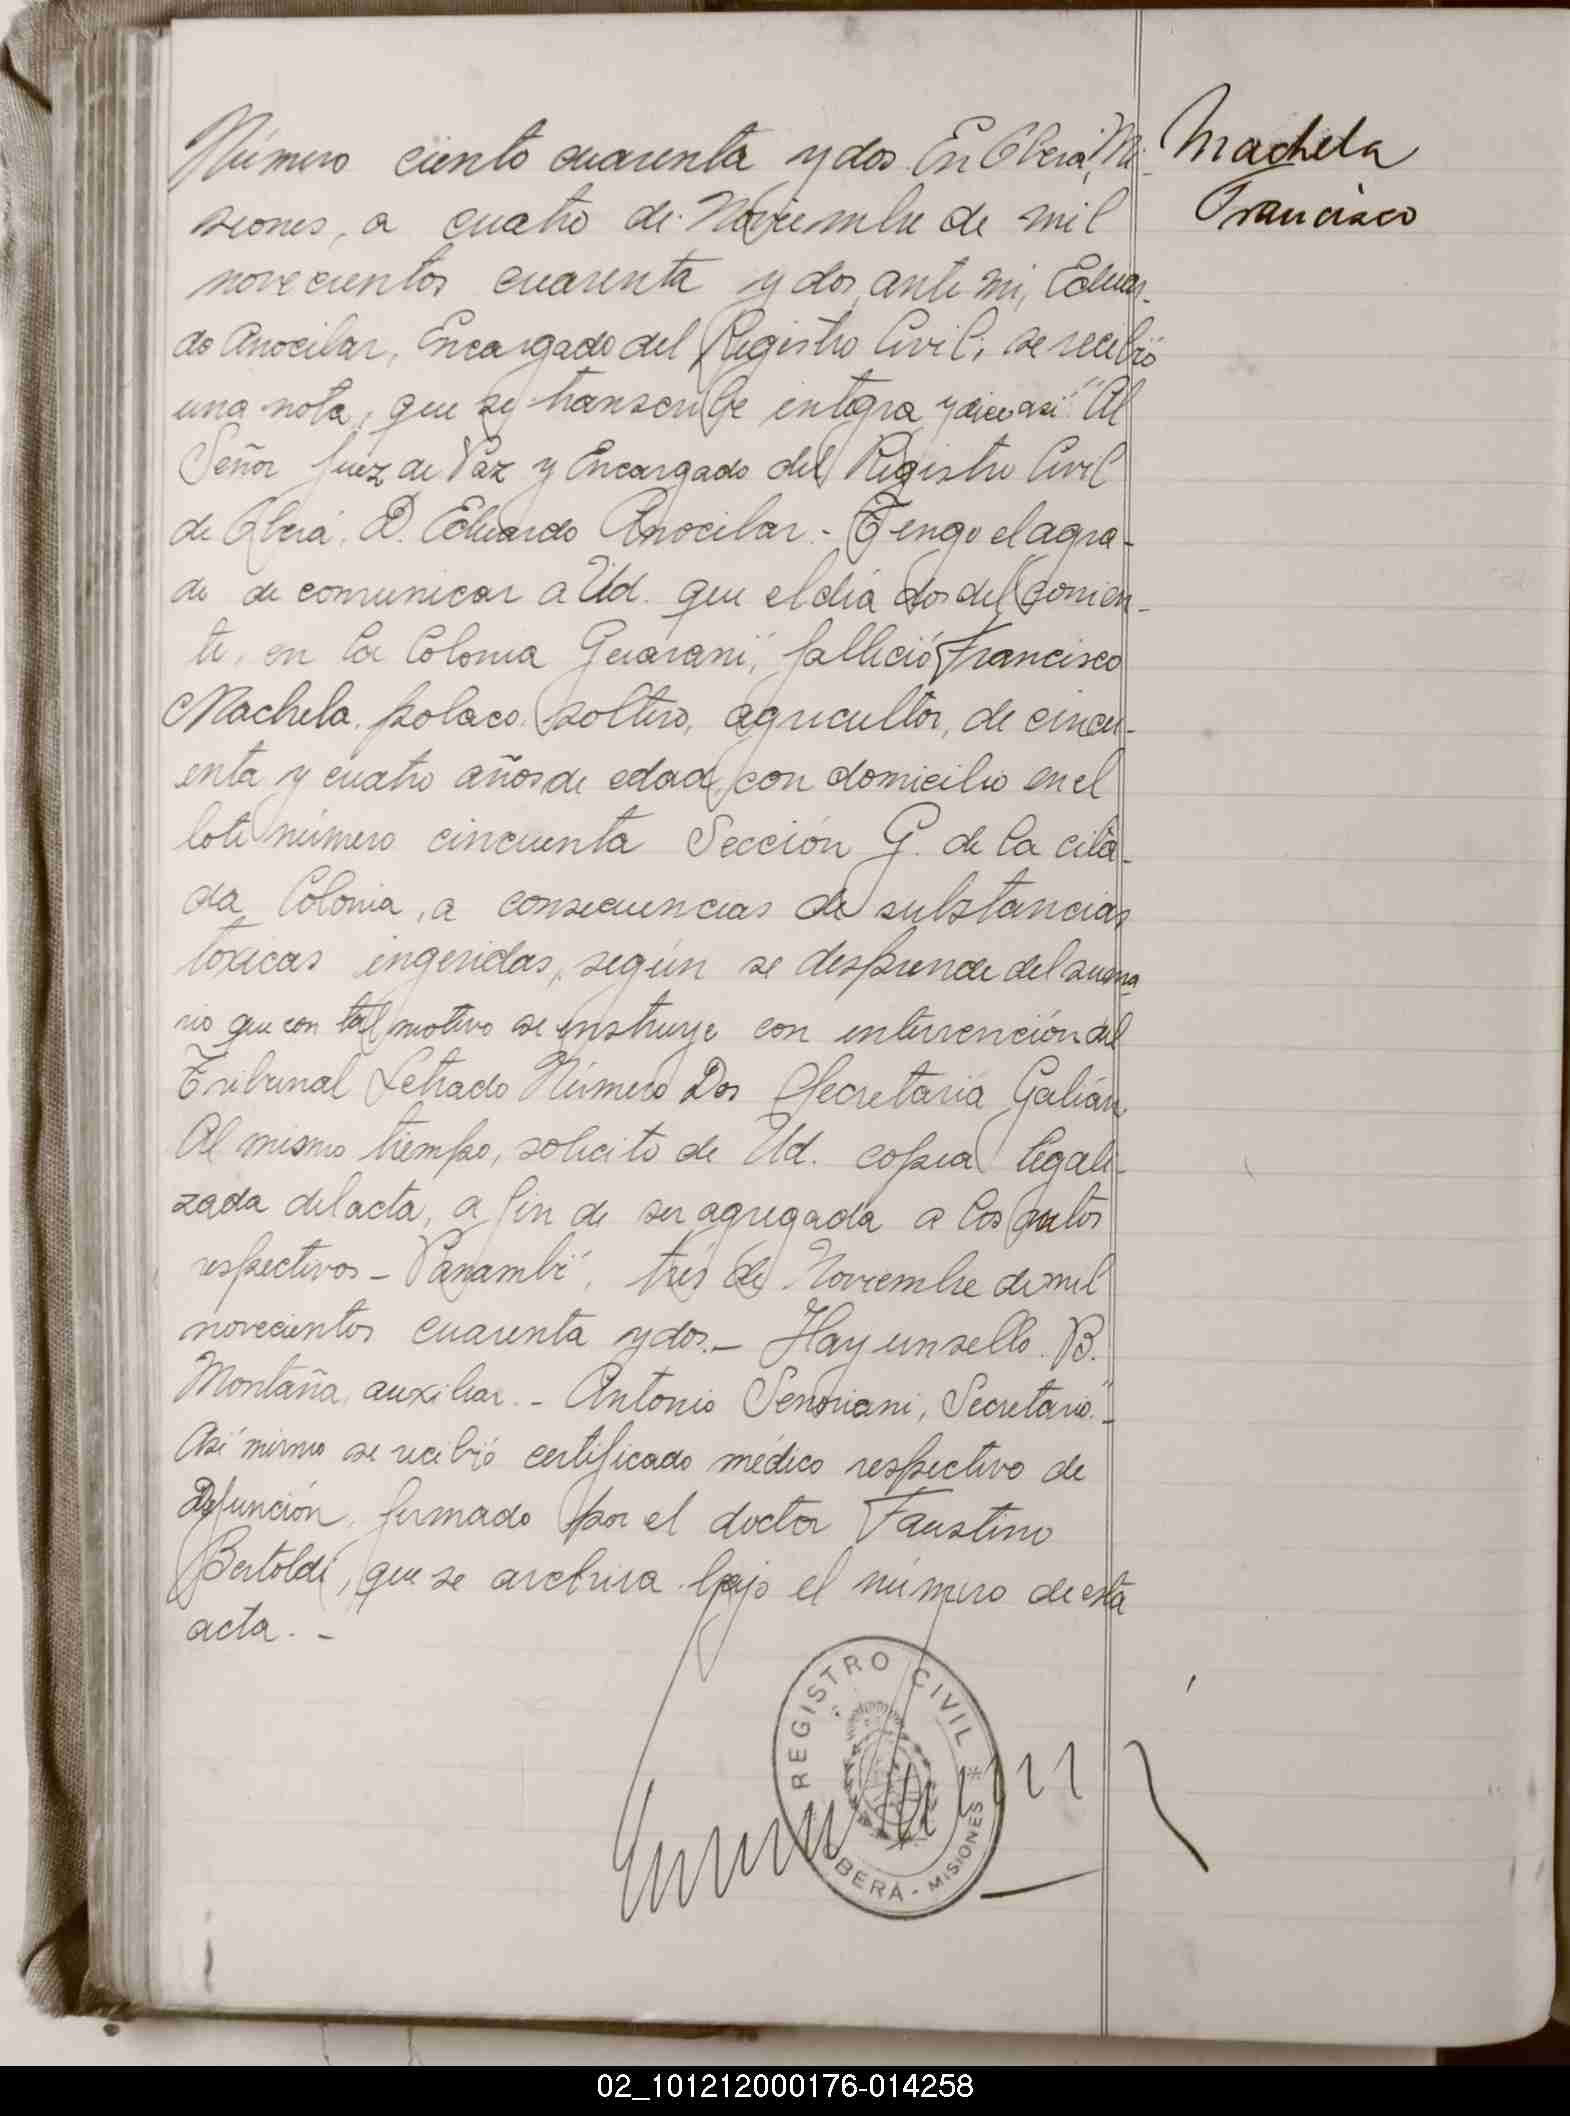 Número ciento cuarenta y dos. En Oberá, Mi-
siones, a cuatro de Noviembre de mil
novecientos cuarenta y dos, ante mi, Eduar-
do Anocibar, Encargado del Registro Civil, se recibió
una nota, que se transcribe integra y dice asi: "Al
Señor Juez de Paz y Encargado del Registro Civil
de Oberá, D. Eduardo Anocibar.- Tengo el agra-
do de comunicar a Ud. que el dia dos del corrien-
te, en la Colonia Guaraní, falleció Francisco
Machela, polaco, soltero, agricultor, de cincu-
enta y cuatro años de edad, con domicilio en el
lote número cincuenta Sección G. de la cita-
da Colonia, a consecuencias de substancias
toxicas ingeridas, según se desprende del suma-
rio que con tal motivo se instruye con intervención del
Tribunal Letrado Número Dos Secretaria Galián.
Al mismo tiempo, solicito de Ud. copia legali-
zada del acta, a fin de ser agregada a los autos
respectivos - Panambí, tres de Noviembre de mil
novecientos cuarenta y dos.- Hay un sello. B.
Montaña, auxiliar.- Antonio Senoriani, Secretario."-
Asi mismo se recibió certificado médico respectivo de
Defunción, firmado por el doctor Faustino
Bertoldi, que se archiva bajo el número de esta
acta.-
Machela
Francisco
REGISTRO CIVIL *
OBERÁ - MISIONES
02_101212000176-014258